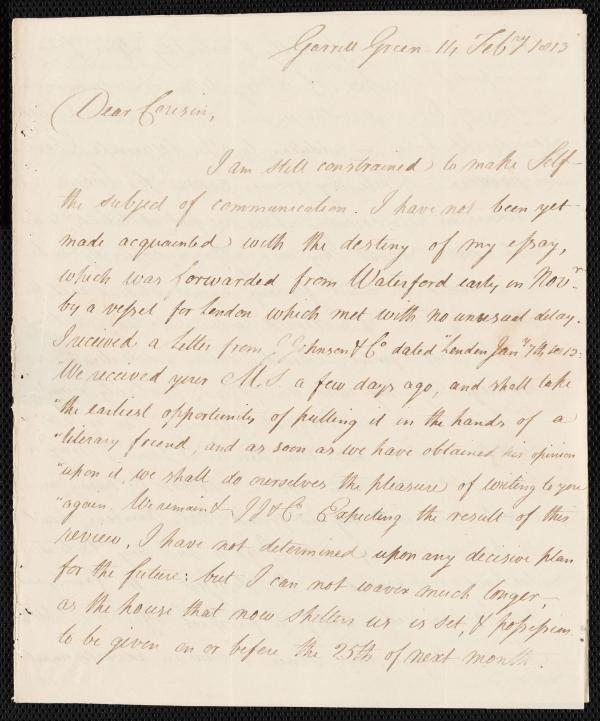 Garrill Green 14 Feby 1813
Dear Cousin,
I am still constrained to make Self
the subject of communication. I have not been yet
made acquainted with the destiny of my essay,
which was forwarded from Waterford early in Novr
by a vessel for London which met with no unusual delay.
I received a Letter from J Johnson & Co dated "London Jany 7th 1813:
"We received your M.S. a few days ago, and shall take
"the earliest opportunity of putting it in the hands of a
"literary friend, and as soon as we have obtained his opinion
"upon it, we shall do ourselves the pleasure of writing to you
"again. We remain & J J & Co Expecting the result of this
review, I have not determined upon any decisive plan
for the future: but I can not waver much longer,
as the house that now shelters us is set, & possession
to be given on or before the 25th of next month.